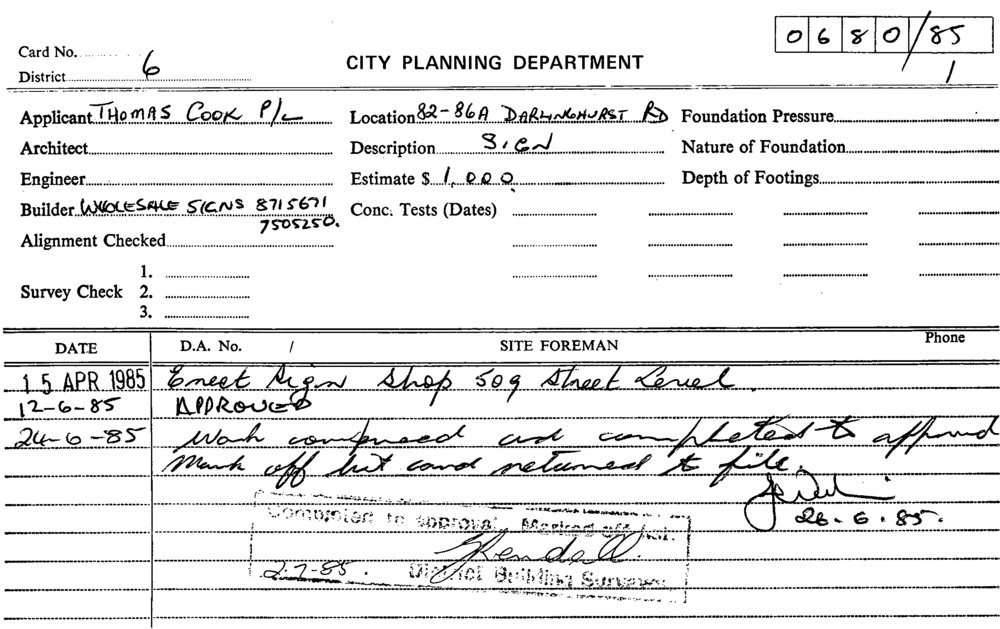 0680/85
Card No.
1
District 6
CITY PLANNING DEPARTMENT
Applicant THOMAS COOK P/L Location 82-86A DARLINGHURST RD Foundation Pressure
Architect Description SIGN Nature of Foundation
Engineer Estimate $ 1,000 Depth of Footings
Builder WHOLESALE SIGNS 8715671 Conc. Tests (Dates)
7505250.
Alignment Checked
1.
Survey Check 2.
3.
DATE D.A. No. / SITE FOREMAN Phone
15 APR 1985 Erect sign Shop 509 Street Level.
12-6-85 APPROVED
24-6-85 Work and completed to
Mark off list card returned to file.
26.6.85.
Completed to approval. Marked off list.
2-7-85. District Building Surveyor